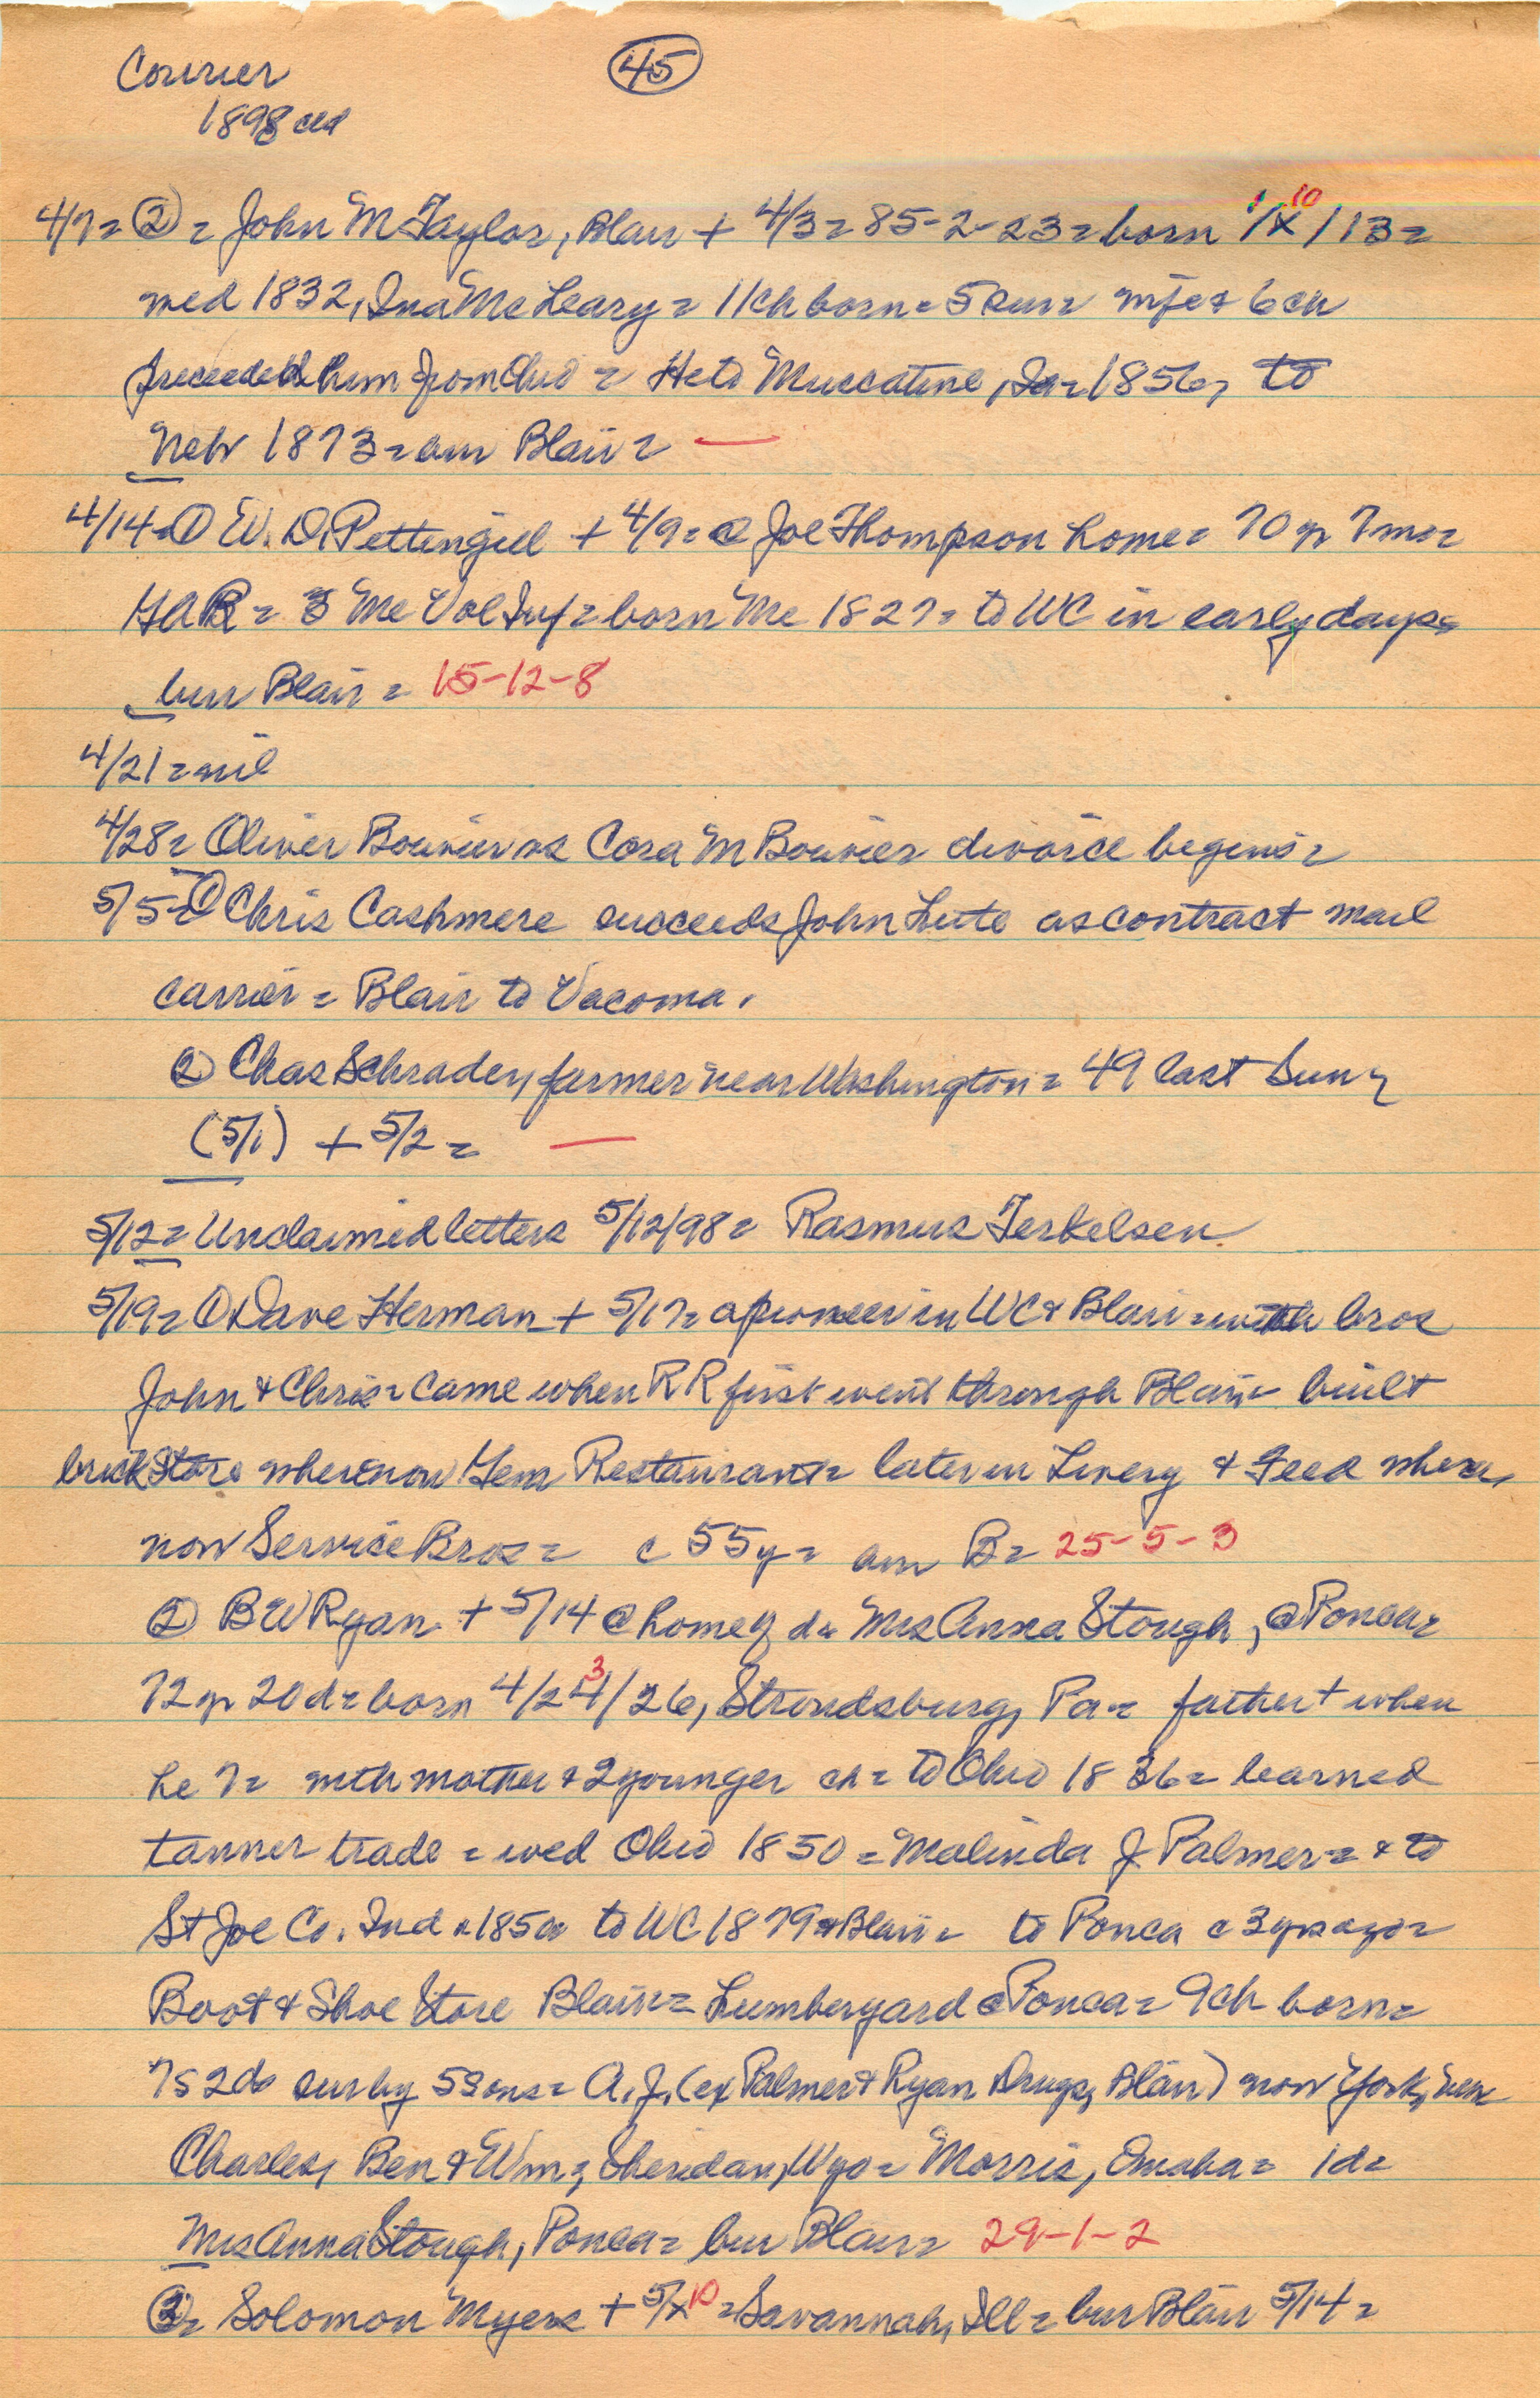 Courier 45
1898 ctd
4/7= 2 = John M Taylor, Blair + 4/3= 85-2-23= born 1/10/13=
wed 1832, Ina McLeary= 11ch born= 5 sur= wife & 6 ch
preceeded him from Ohio = He to Muscatine, Ia=1856, to
Neb 1873= bur Blair= —
4/14= 1 W. D. Pettengill + 4/9= @ Joe Thompson home= 70 yr 7mo=
GAR= 3 Me Vol Inf= born Me 1827= to WC in early days=
bur Blair= 15-12-8
4/21=nil
4/28= Oliver Bouvier vs Cora M Bouvier divorce begins=
5/5= 1 Chris Cashmere succeeds John Lute as contract mail
carrier= Blair to Vacoma.
2 Chas Schrader, farmer near Washington= 49 last Sun,
(5/1) + 5/2= —
5/12= Unclaimed letters 5/12/98= Rasmus Terkelsen
5/19= 1 Dave Herman + 5/17= a pioneer in WC & Blair= with bros
John & Chris= came when RR first went through Blair= built
brick store where now Gem Restaurant= later in Livery & Feed where
now Service Bros= c 55y= bur B= 25-5-3
2 BW Ryan + 5/14 @ home of da Mrs Anna Stough, @ Ponca=
72 yr 20d= born 4/24 3/26, Stroudsburg, Pa= father + when
he 7= with mother & 2 younger ch= to Ohio 1836= learned
tanner trade = wed Ohio 1850 = Malinda J Palmer= & to
St Joe Co. Ind to WC 1879 & Blair= to Ponca c 3 yrs ago=
Boot & Shoe Store Blair= Lumberyard @ Ponca= 9ch born=
7s 2ds sur by 5 sons= A. J. (ex Palmer & Ryan Drugs, Blair) now York, Neb
Charles, Ben & Wm, Sheridan, Wyo= Morris, Omaha= 1d=
Mrs Anna Stough, Ponca= bur Blair= 29-1-2
3= Solomon Myers + 5/10 = Savannah, Ill= bur Blair 5/14=